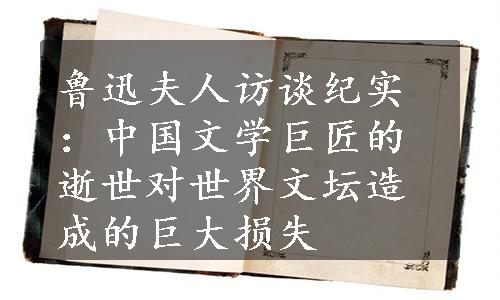 鲁迅夫人访谈纪实
：中国文学巨匠的
逝世对世界文坛造
成的巨大损失